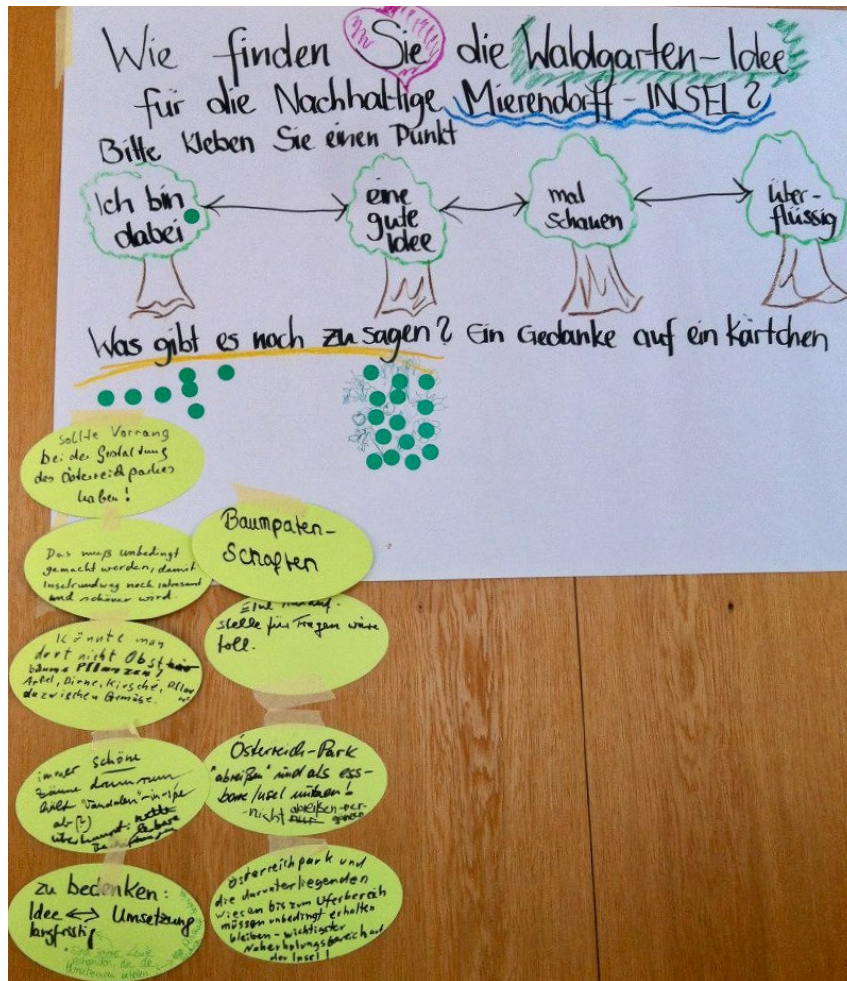 Wie finden Sie die Waldgarten-Idee
für die Nachhaltige Mierendorff-INSEL?
Bitte kleben Sie einen Punkt
Ich bin
dabei
eine
gute
Idee
mal
schauen
über-
flüssig
Was gibt es noch zu sagen? Ein Gedanke auf ein Kärtchen
sollte Vorrang
bei der Gestaltung
des Österreichparkes
haben!
Das muß unbedingt
gemacht werden, damit
Inselrundweg noch
und schöner wird.
Könnte man
dort nicht Obst
bäume Pflanzen?
Apfel, Birne, Kirsche,
dazwischen Gemüse.
immer schöne
Zäune drumrum
hält "Vandalen"
ab(?)
überhaupt:
zu bedenken:
Idee <-> Umsetzung
langfristig
Baumpaten-
Schaften
Eine
stelle für Fragen wäre
toll.
Österreich-Park
"abreißen" und als ess-
bare Insel nutzen!
-nicht abreißen-
Österreichpark und
die darunterliegenden
Wiesen bis zum Uferbereich
müssen unbedingt erhalten
bleiben - wichtigster
Naherholungsbereich auf
der Insel!